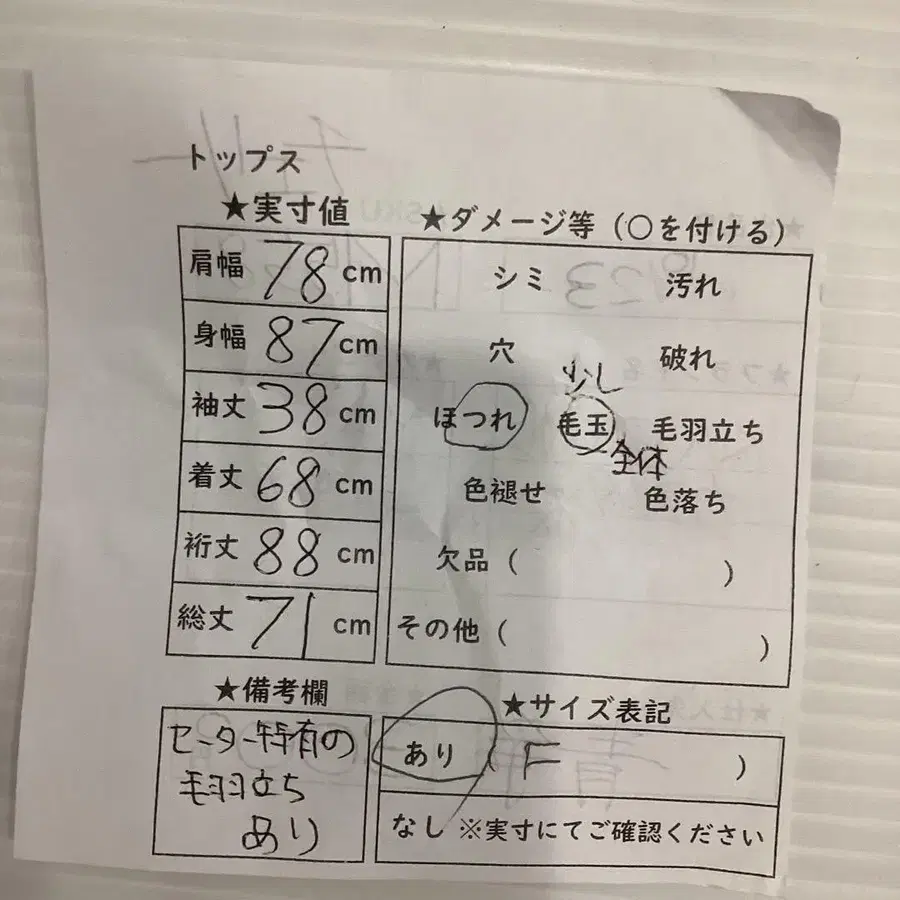 トップス
★実寸値
肩幅 78 cm
身幅 87 cm
袖丈 38 cm
着丈 68 cm
裄丈 88 cm
総丈 71 cm
★ダメージ等（○を付ける）
シミ 汚れ
穴 破れ
少し
ほつれ 毛玉 毛羽立ち
全体
色褪せ 色落ち
欠品（ ）
その他（ ）
★備考欄
セーター特有の
毛羽立ち
あり
★サイズ表記
あり（ F ）
なし ※実寸にてご確認ください